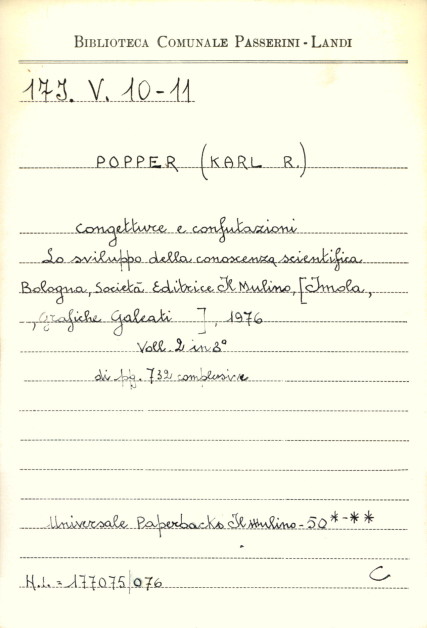 BIBLIOTECA COMUNALE PASSERINI - LANDI
17J. V. 10-11
POPPER (KARL R.)
Congetture e confutazioni
Lo sviluppo della conoscenza scientifica
Bologna, Società Editrice Il Mulino, [Imola,
Grafiche Galeati ], 1976
Voll. 2 in 8°
di pg. 732 complessive
Universale Paperbacks Il Mulino - 50 *-**
N.I. = 177075/076
C